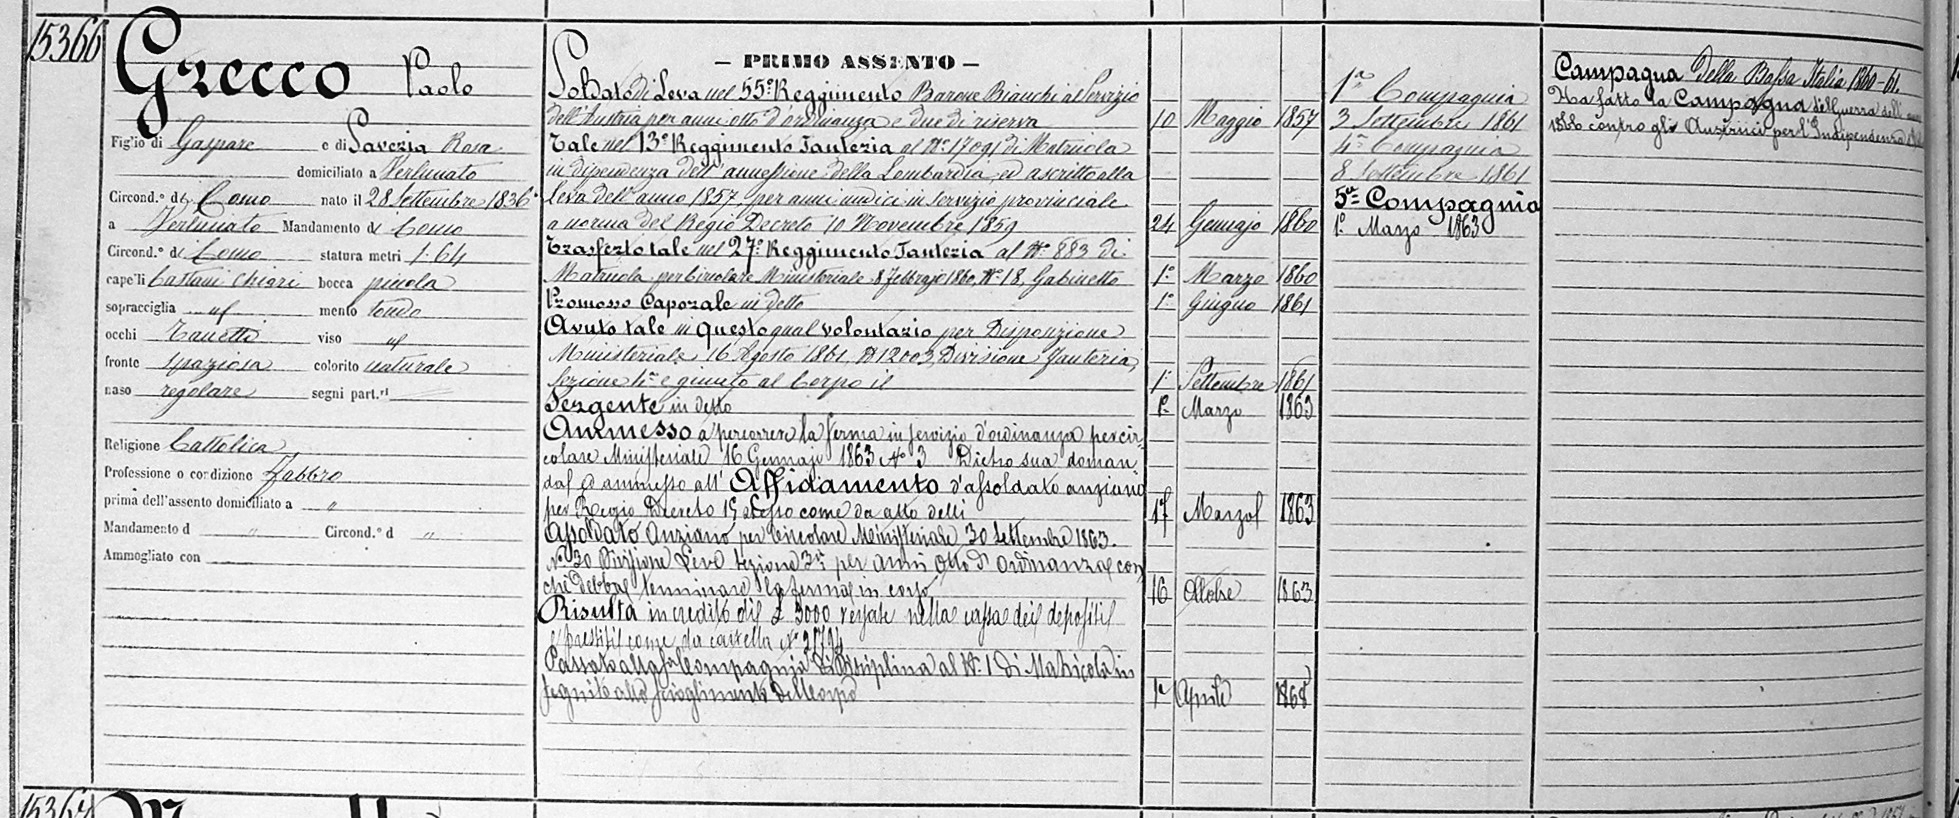 15366
Grecco Paolo
Figlio di Gaspare e di Pavezia Rosa
domiciliato a Vertunato
Circond.º di Como nato il 28 Settembre 1836
a Vertunato Mandamento di Como
Circond.º di Como statura metri 1.64
capelli Castani Chiari bocca piccola
sopracciglia id mento tondo
occhi viso id
fronte spaziosa colorito naturale
naso regolare segni part.ri
Religione Cattolica
Professione o condizione Fabbro
prima dell'assento domiciliato a "
Mandamento d " Circond.º d "
Ammogliato con
— PRIMO ASSENTO —
Soldato di Leva nel 55º Reggimento Barone Bianchi al Servizio
dell'Austria per anni otto d'ordinanza e due di riserva 10 Maggio 1857
Tale nel 13º Reggimento Fanteria al Nº 17091 di Matricola
in dipendenza dell'annessione della Lombardia, ed ascritto alla
Leva dell'anno 1857 per anni undici in servizio provinciale
a norma del Regio Decreto 10 Novembre 1859 24 Gennajo 1860
Trasferto tale nel 27º Reggimento Fanteria al Nº 883 di
Matricola per Circolare Ministeriale 8 Febbrajo 1860, Nº 18, Gabinetto 1º Marzo 1860
Promosso Caporale in detto 1º Giugno 1861
Avuto tale in questo qual volontario per Disposizione
Ministeriale 16 Agosto 1861, Nº 12003, Divisione Fanteria,
Sezione 4ª e giunto al Corpo il 1º Settembre 1861
Sergente in detto 1º Marzo 1863
Ammesso a percorrere la ferma in servizio d'ordinanza per cir-
colare Ministeriale 16 Gennajo 1863 Nº 3 Dietro sua doman
da ammesso all'Affidamento d'assoldato anziano
per Regio Decreto 15 stesso come da atto delli 17 Marzo 1863
Assoldato Anziano per Circolare Ministeriale 30 Settembre 1863
Nº 30 Divisione Leve Sezione 3ª per anni otto d'ordinanza con
che debba terminare la ferma in corso 16 Ottobre 1863
Risulta in credito di £ 3000 versate nella cassa dei depositi
e prestiti come da cartella Nº 2794
Passato alla Compagnia di Disciplina al Nº 1 di Matricola in
seguito allo scioglimento del Corpo 1º Aprile 1868
1ª Compagnia
3 Settembre 1861
4ª Compagnia
8 Settembre 1861
5ª Compagnia
1º Marzo 1863
Campagna della Bassa Italia 1860-61.
Ha fatto la Campagna di Guerra dell'
1866 contro gli Austriaci per l'Indipendenza
15367